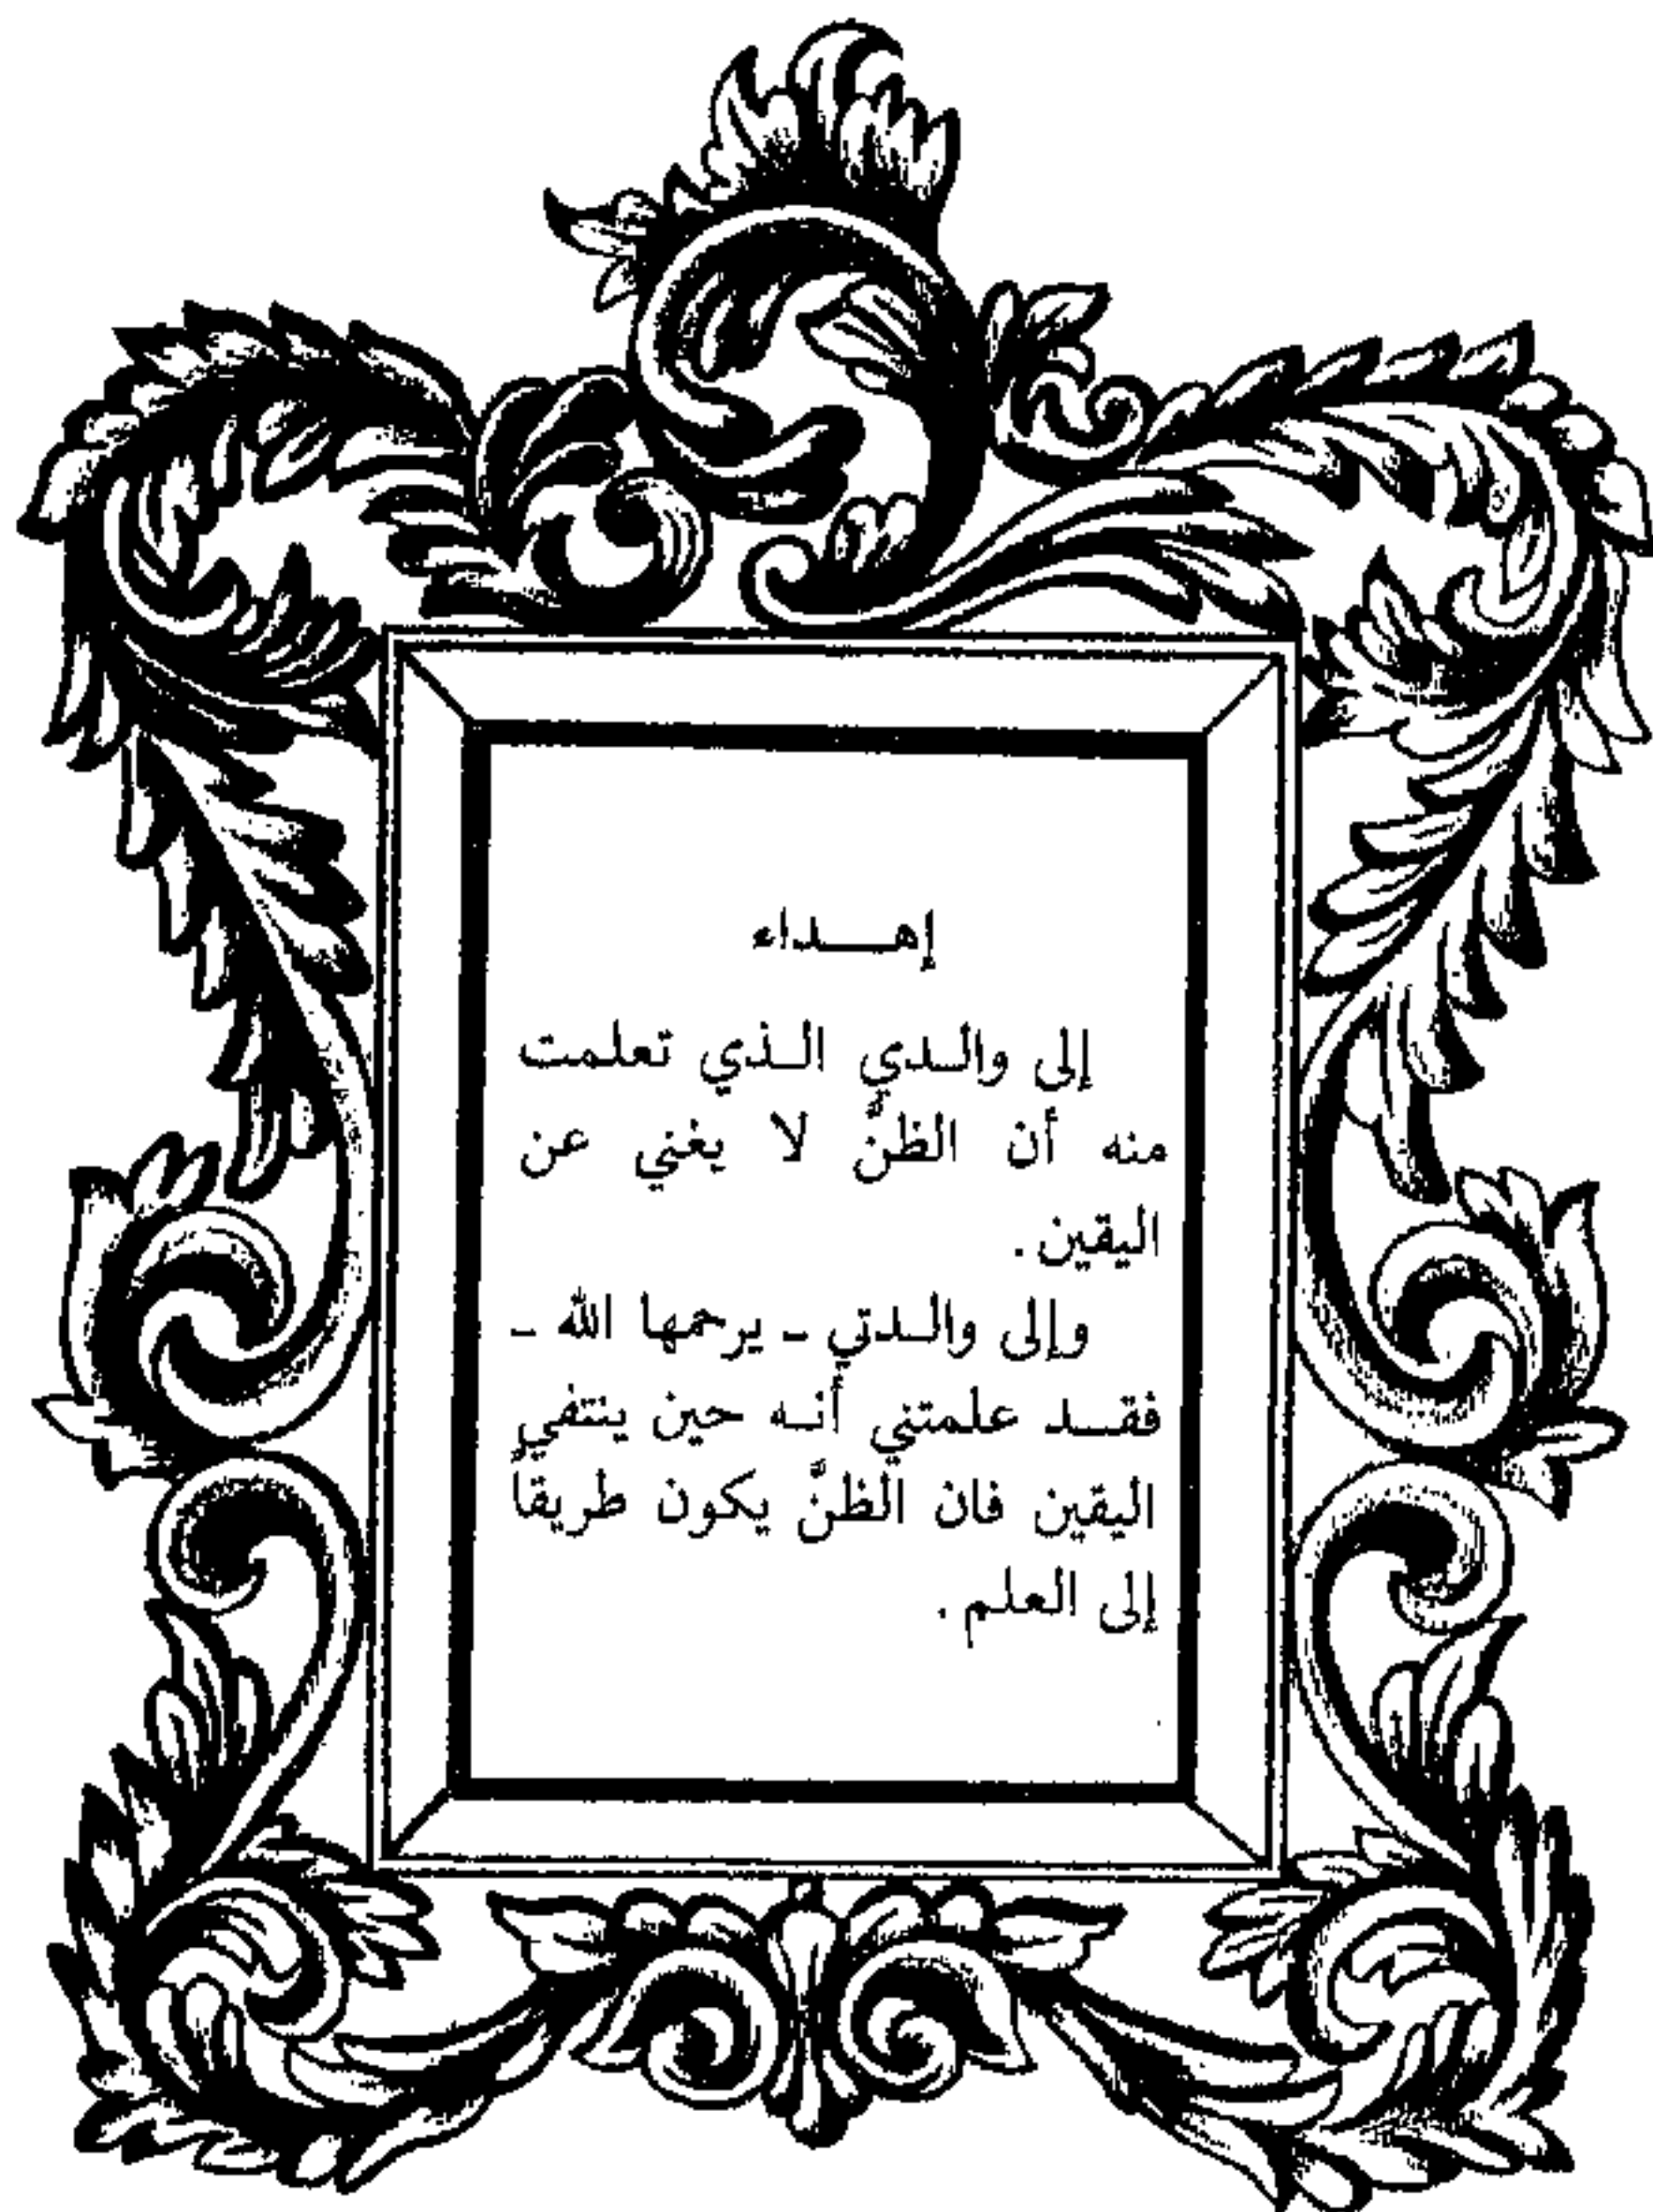 إهداء
إلى والدي الذي تعلمت
منه أن الظنّ لا يغني عن
اليقين .
وإلى والدتي - يرحمها الله -
فقد علمتني أنه حين ينتفي
اليقين فان الظنّ يكون طريقاً
إلى العلم .